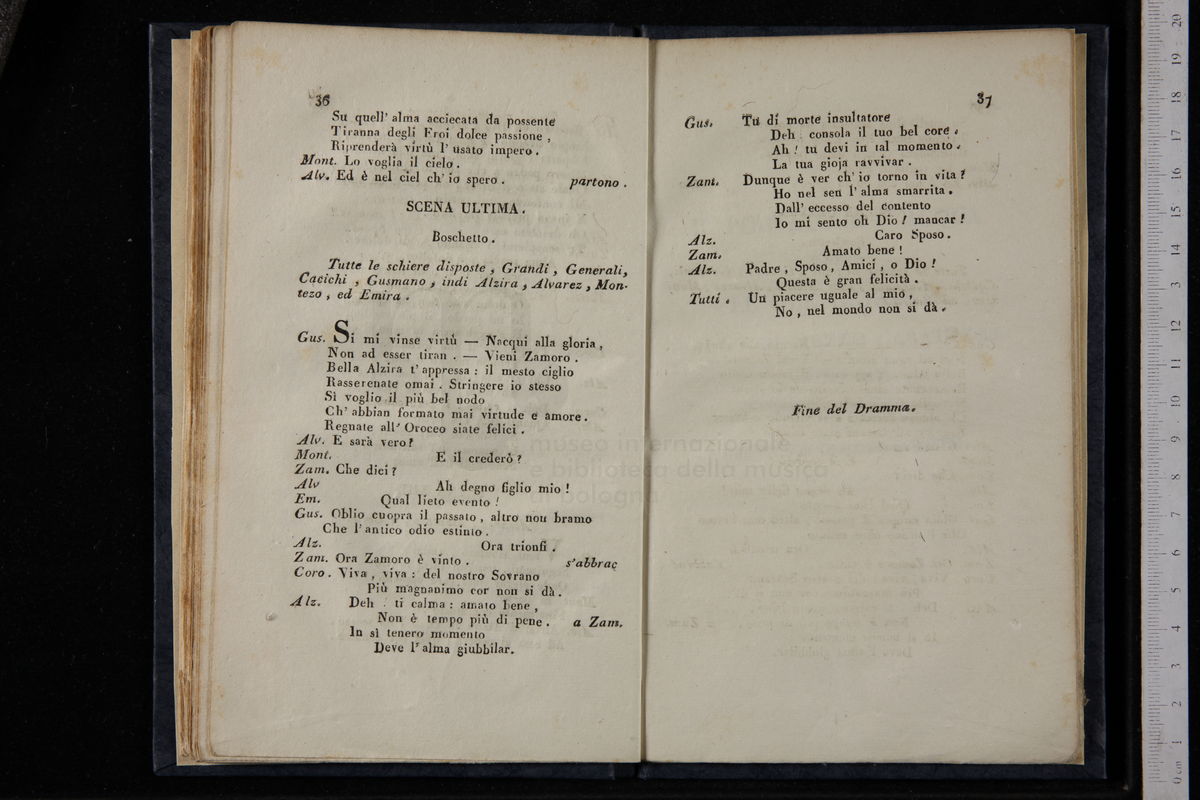 36
Su quell' alma acciecata da possente
Tiranna degli Eroi dolce passione ,
Riprenderà virtù l' usato impero .
Mont. Lo voglia il cielo .
Alv. Ed è nel ciel ch' io spero . partono .
SCENA ULTIMA .
Boschetto .
Tutte le schiere disposte , Grandi , Generali,
Cacichi , Gusmano , indi Alzira , Alvarez , Mon-
tezo , ed Emira .
Gus. Si mi vinse virtù — Nacqui alla gloria ,
Non ad esser tiran . — Vieni Zamoro .
Bella Alzira t' appressa : il mesto ciglio
Rasserenate omai . Stringere io stesso
Sì voglio il più bel nodo
Ch' abbian formato mai virtude e amore .
Regnate all' Oroceo siate felici .
Alv. E sarà vero ?
Mont. E il crederò ?
Zam. Che dici ?
Alv Ah degno figlio mio !
Em. Qual lieto evento !
Gus. Oblio cuopra il passato , altro non bramo
Che l' antico odio estinto .
Alz. Ora trionfi .
Zam. Ora Zamoro è vinto . s'abbrac
Coro . Viva , viva : del nostro Sovrano
Più magnanimo cor non si dà .
Alz. Deh ! ti calma : amato bene ,
Non è tempo più di pene . a Zam.
In sì tenero momento
Deve l' alma giubbilar.
37
Gus. Tu di morte insultatore
Deh : consola il tuo bel core .
Ah ! tu devi in tal momento .
La tua gioja ravvivar .
Zam. Dunque è ver ch' io torno in vita ?
Ho nel sen l' alma smarrita .
Dall' eccesso del contento
Io mi sento oh Dio ! mancar !
Alz. Caro Sposo .
Zam. Amato bene !
Alz. Padre , Sposo , Amici , o Dio !
Questa è gran felicità .
Tutti . Un piacere uguale al mio ,
No , nel mondo non si dà .
Fine del Dramma .
museo internazionale
e biblioteca della musica
di bologna
0 cm 1 2 3 4 5 6 7 8 9 10 11 12 13 14 15 16 17 18 19 20